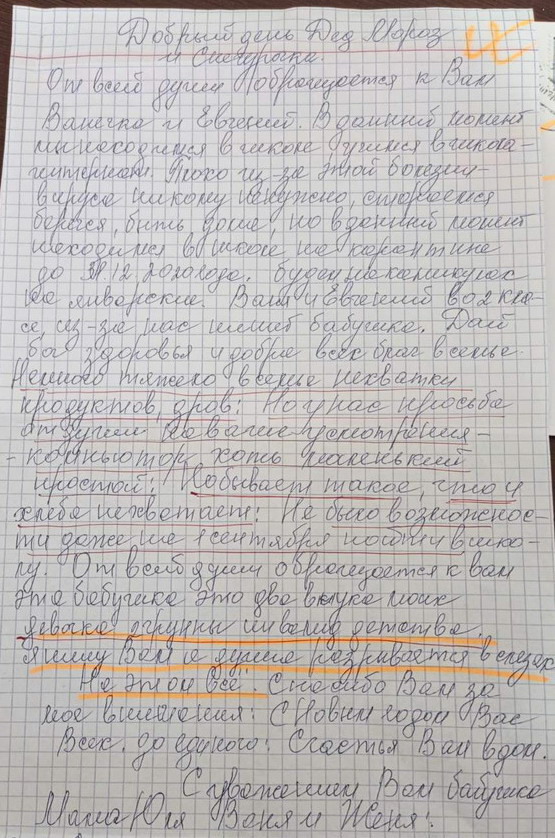 Добрый день Дед Мороз
и Снегурочка.
От всей души оброщается к Вам
Ванечка и Евгений. В данний момент
мы находимся в школе учимся в школа-
интернат. Плохо из-за этой болезни-
вируса никому ненужно, стараемся
беречся, быть доме, но в данний момент
находимся в школе на карантине
до 12.2020 года. будем на каникулах
на январские. Ваня и Евгений во 2 кла-
се, из-за нас пишит бабушка. Дай
бог здоровья и добра всех благ в семье.
Немного тяжело в семье нехватки
продуктов, дров: Но у нас просьба
от души на ваше усмотрения-
- компьютор хоть маленький
простой: Но бывает такое, что и
хлеба нехватает: Не было возможнос-
ти даже на 1 сентября пойти в шко-
лу. От всей души оброщается к вам
эта бабушка это два внука моих
девочка группы инвалид детства,
я пишу Вам а душа разривается в слезах
На этом всё. Спасибо Вам за
мое внимания: С Новим годом Вас
Всех. до единого: Счастья Вам в дом.
С уважением Вам бабушка
Мама Юля Ваня и Женя: